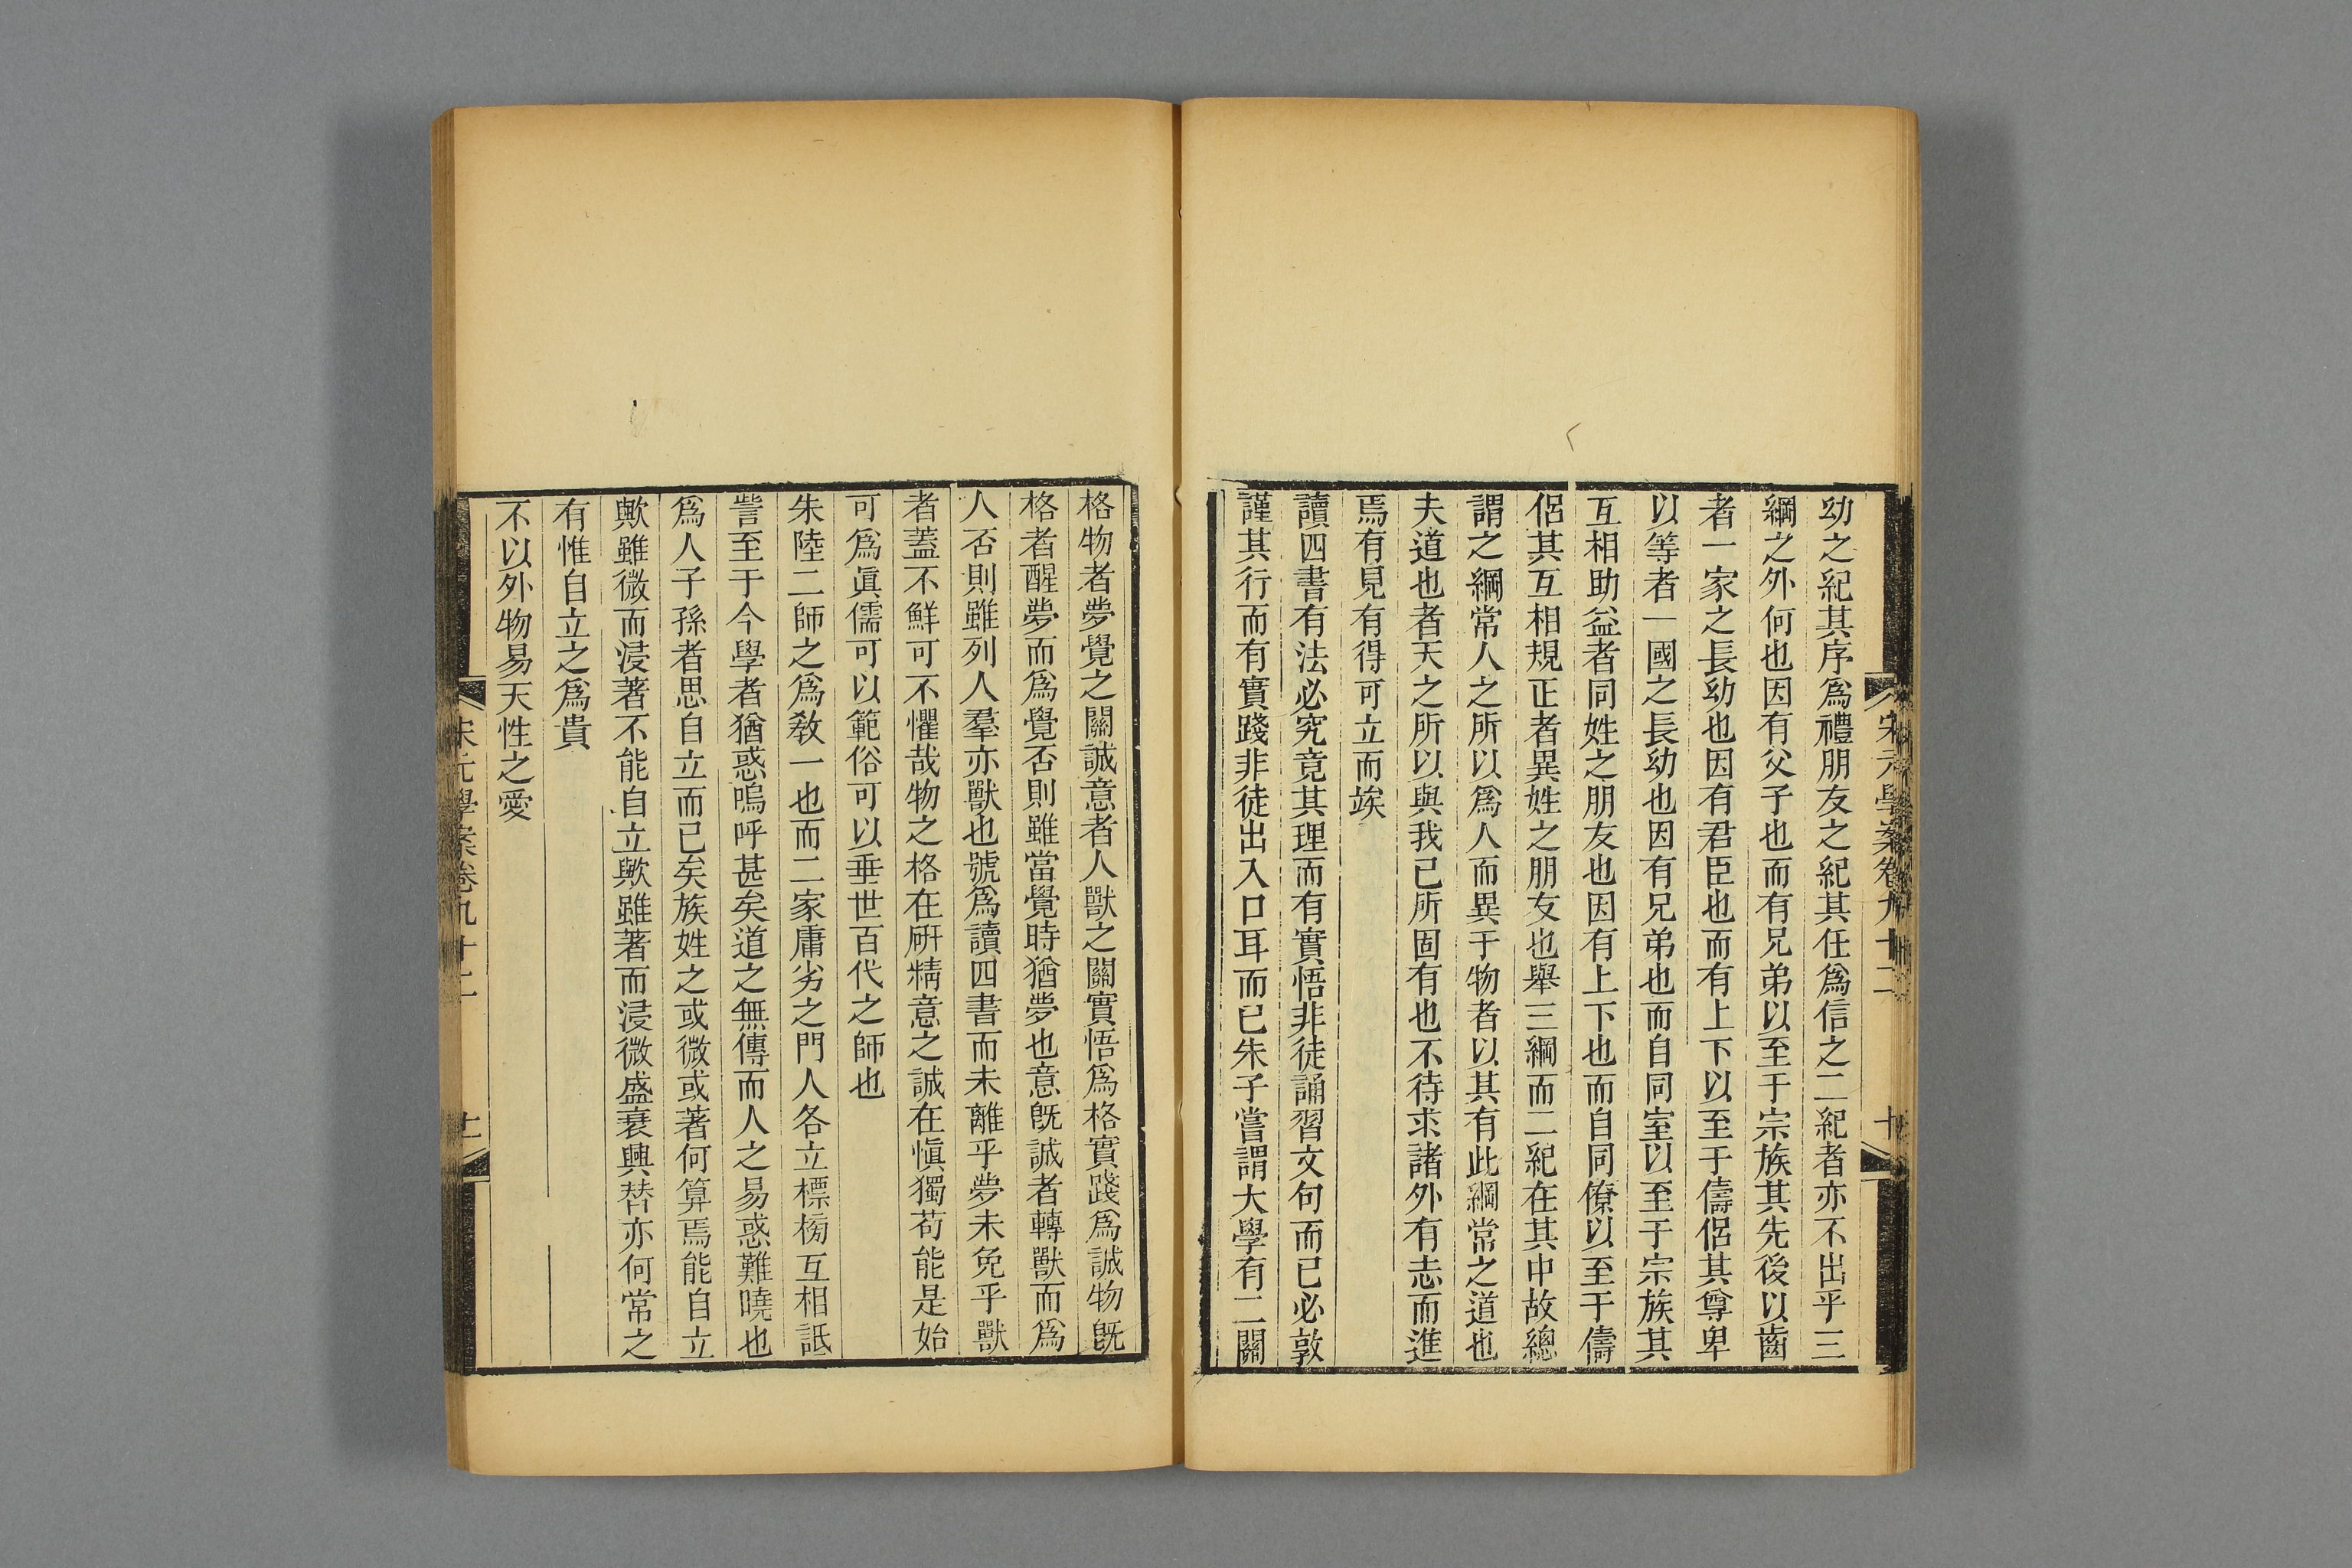 宋元學案卷九十二
十
幼之紀其序爲禮朋友之紀其任爲信之二紀者亦不出乎三
綱之外何也因有父子也而有兄弟以至于宗族其先後以齒
者一家之長幼也因有君臣也而有上下以至于儔侶其尊卑
以等者一國之長幼也因有兄弟也而自同室以至于宗族其
互相助益者同姓之朋友也因有上下也而自同僚以至于儔
侶其互相規正者異姓之朋友也舉三綱而二紀在其中故總
謂之綱常人之所以爲人而異于物者以其有此綱常之道也
夫道也者天之所以與我已所固有也不待求諸外有志而進
焉有見有得可立而竢
讀四書有法必究竟其理而有實悟非徒誦習文句而已必敦
謹其行而有實踐非徒出入口耳而已朱子嘗謂大學有二關
格物者夢覺之關誠意者人獸之關實悟爲格實踐爲誠物旣
格者醒夢而爲覺否則雖當覺時猶夢也意旣誠者轉獸而爲
人否則雖列人羣亦獸也號爲讀四書而未離乎夢未免乎獸
者蓋不鮮可不懼哉物之格在硏精意之誠在愼獨苟能是始
可爲眞儒可以範俗可以垂世百代之師也
朱陸二師之爲敎一也而二家庸劣之門人各立標榜互相詆
訾至于今學者猶惑嗚呼甚矣道之無傳而人之易惑難曉也
爲人子孫者思自立而已矣族姓之或微或著何算焉能自立
歟雖微而浸著不能自立歟雖著而浸微盛衰興替亦何常之
有惟自立之爲貴
不以外物易天性之愛
宋元學案卷九十二
十一